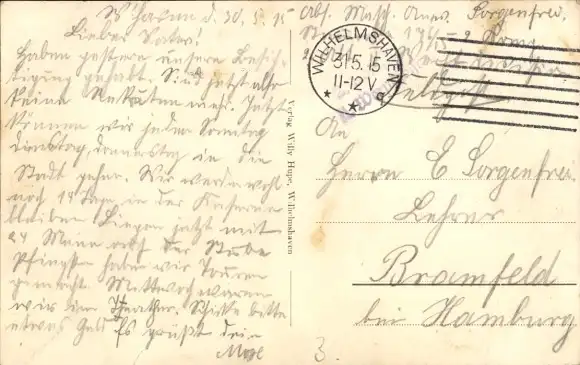 W'haven d. 30. 5. 15
Lieber Vater!
Haben gestern unsere Besich-
tigung gehabt. Sind jetzt also
keine Rekruten mehr. Jetzt
können wir jeden Sonntag
Dienstag, Donnerstag in die
Stadt gehen. Wir werden wohl
noch 14 Tage in der Kaserne
bleiben. Liegen jetzt mit
24 Mann auf der Stube
Pfingsten haben wir Touren
gemacht. Mittwoch waren
wir im Theather. Schicke bitte
etwas Geld Es grüßt dein
Max
Verlag Willy Hape, Wilhelmshaven
Abs. Masch. Anw. Sorgenfrei,
WILHELMSHAVEN
31.5.15
11-12 V
An
Herrn E Sorgenfrei.
Lehrer
Bramfeld
bei Hamburg
3.